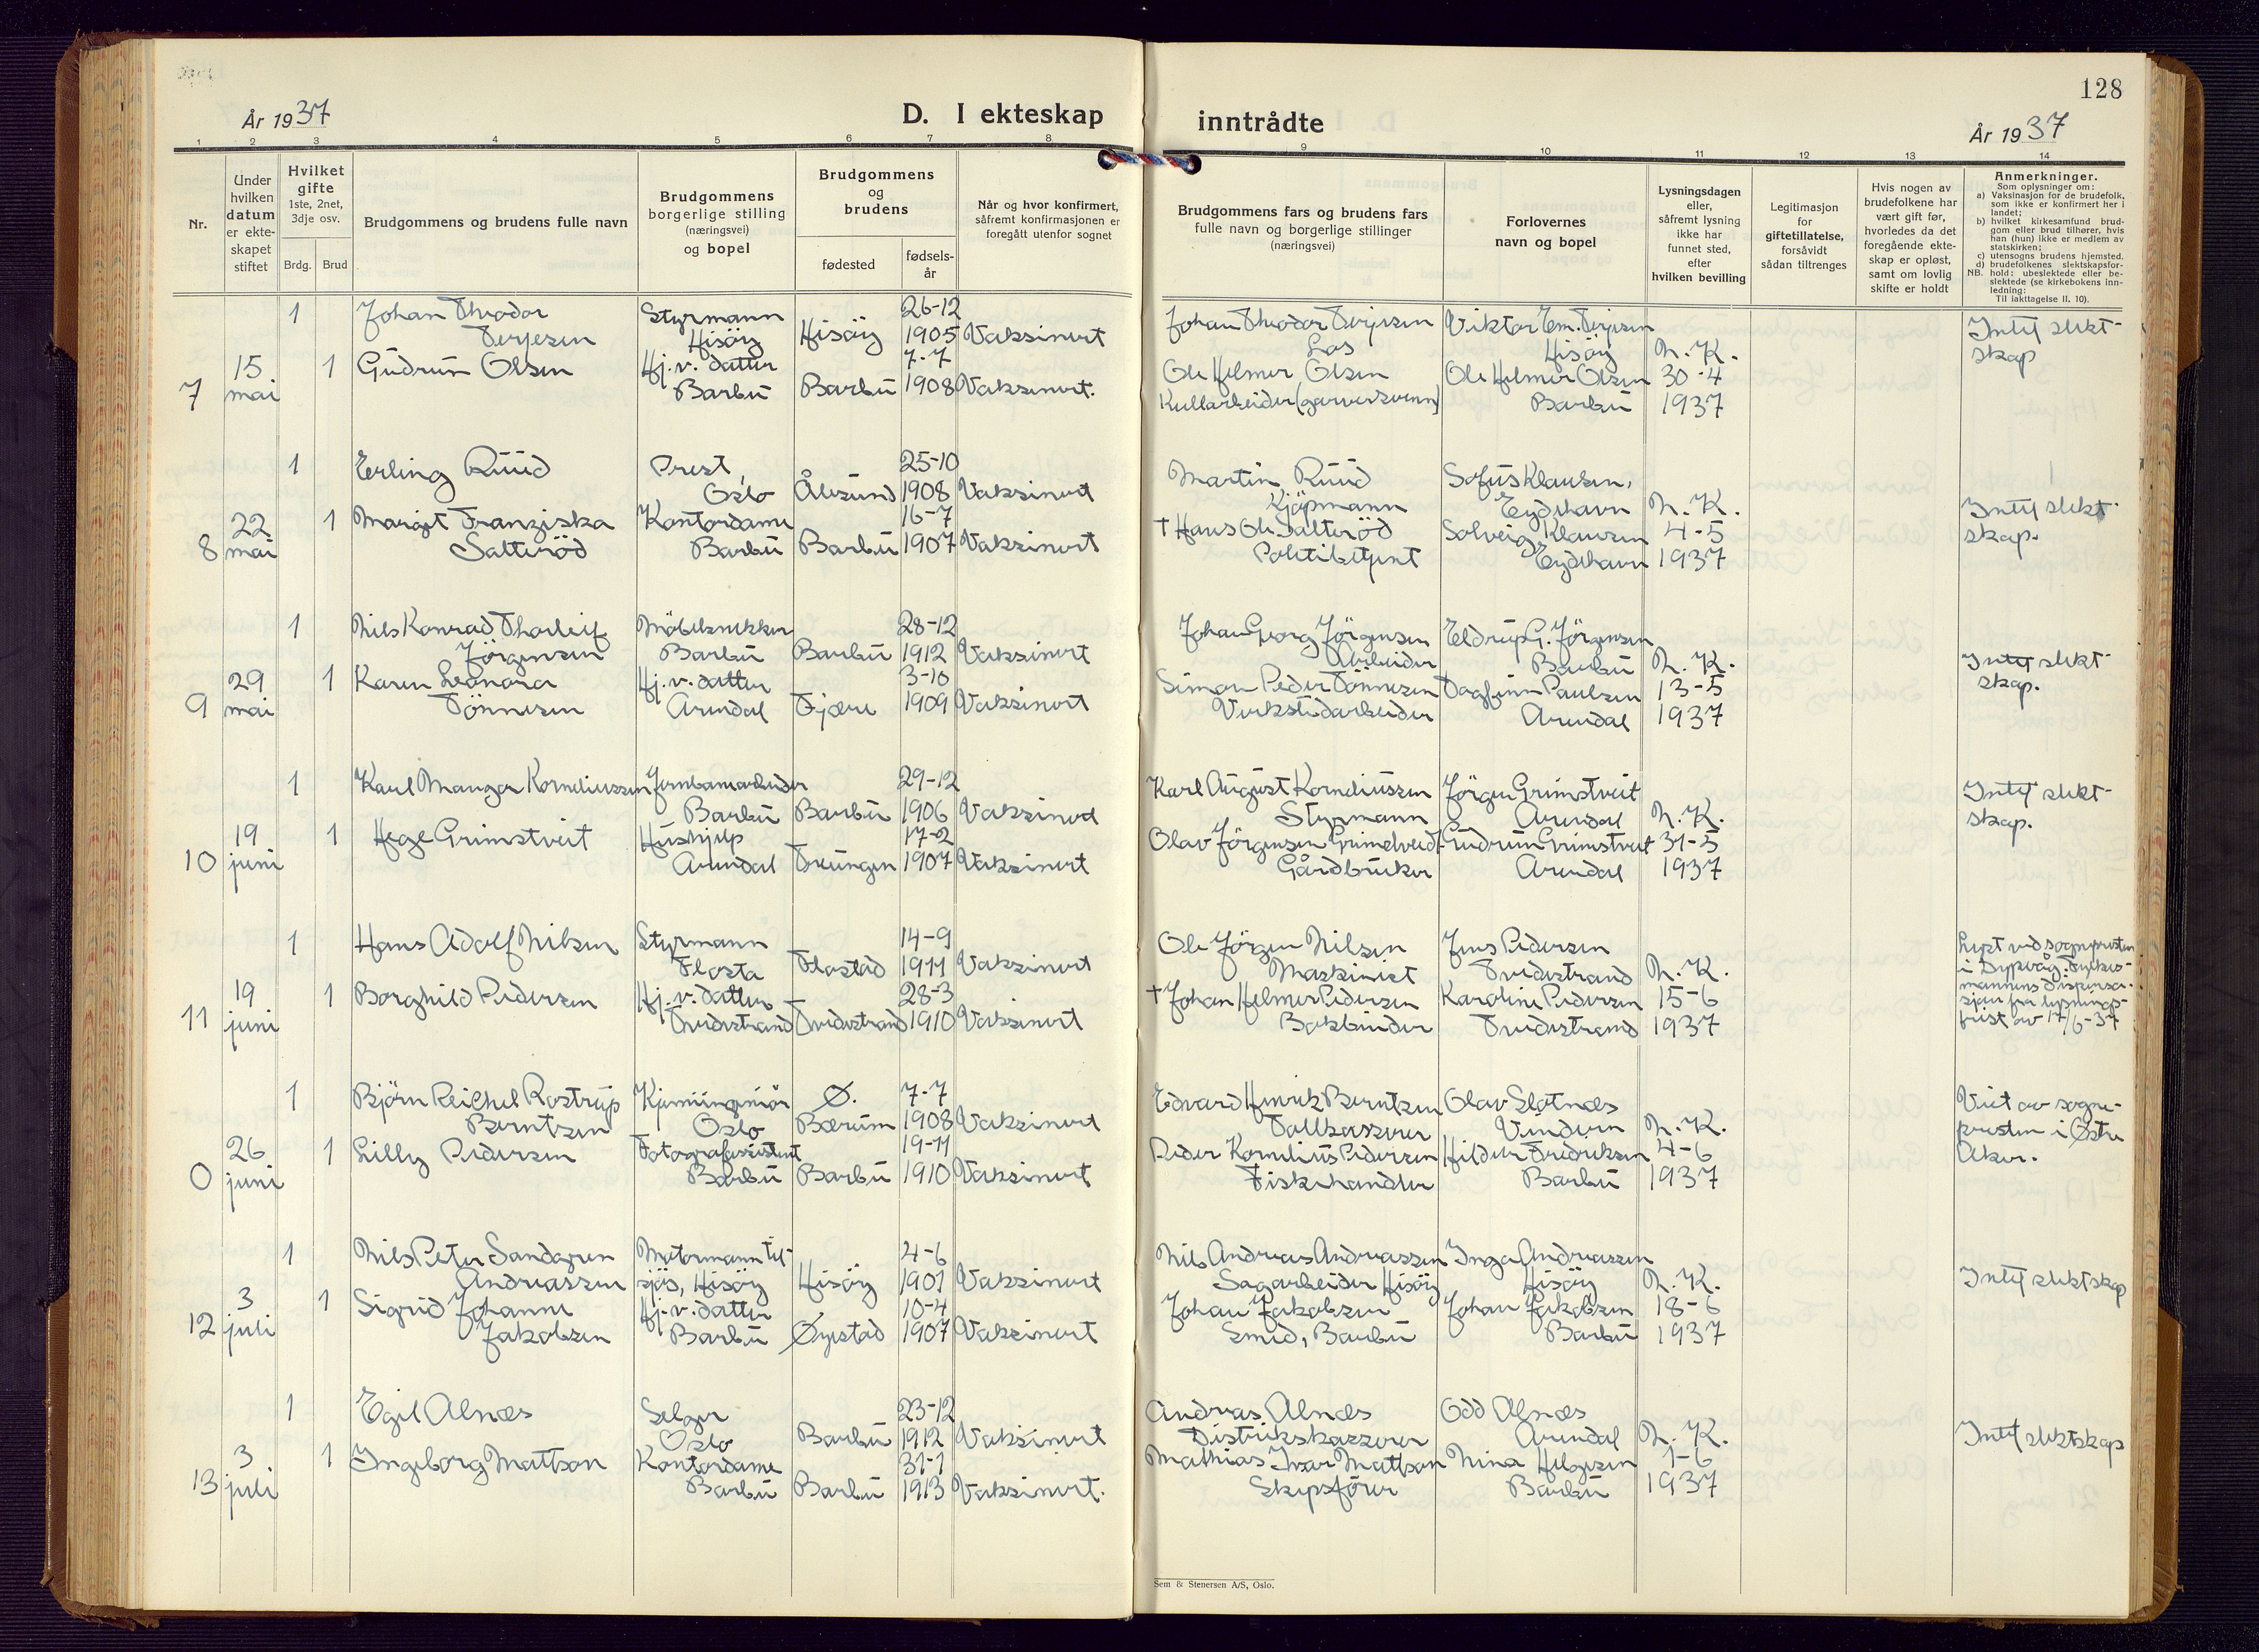 128
År 1937
D. I ekteskap inntrådte
År 1937
1 2 3 4 5 6 7 8 9 10 11 12 13 14
Nr.
Under hvilken datum er ekteskapet stiftet
Hvilket gifte
1ste, 2net, 3dje osv.
Brdg. Brud
Brudgommens og brudens fulle navn
Brudgommens borgerlige stilling (næringsvei) og bopel
Brudgommens og brudens
fødested
fødselsår
Når og hvor konfirmert, såfremt konfirmasjonen er foregått utenfor sognet
Brudgommens fars og brudens fars fulle navn og borgerlige stillinger (næringsvei)
Forlovernes navn og bopel
Lysningsdagen eller, såfremt lysning ikke har funnet sted, efter hvilken bevilling
Legitimasjon for giftetillatelse, forsåvidt sådan tiltrenges
Hvis nogen av brudefolkene har vært gift før, hvorledes da det foregående ekteskap er opløst, samt om lovlig skifte er holdt
Anmerkninger.
Som oplysninger om:
a) Vaksinasjon for de brudefolk, som ikke er konfirmert her i landet;
b) hvilket kirkesamfund brudgom eller brud tilhører, hvis han (hun) ikke er medlem av statskirken;
c) utensogns brudens hjemsted.
d) brudefolkenes slektskapsforhold: ubeslektede eller beslektede (se kirkebokens innledning:
NB.
Til iakttagelse II, 10).
7
15 mai
1 Johan Theodor Terjesen
Styrmann Hisöy
Hisöy
26-12 1905
Vaksinert
Johan Theodor Terjesen Los
Viktor Em. Terjesen Hisöy
N. K. 30-4 1937
Intet slektskap
1 Gudrun Olsen
Hj. v. datter Barbu
Barbu
7-7 1908
Vaksinert.
Ole Helmer Olsen Kullarbeider (garversvenn)
Ole Helmer Olsen Barbu
8
22 mai
1 Erling Ruud
Prest, Oslo
Ålesund
25-10 1908
Vaksinert
Martin Ruud Kjöpmann
Sofus Klausen, Eydehavn
N. K. 4-5 1937
Intet slektskap.
1 Margit Franziska Salteröd
Kontordame Barbu
Barbu
16-7 1907
Vaksinert
† Hans Ole Salteröd Politibetjent
Solveig Klausen Eydehavn
9
29 mai
1 Nils Konrad Thorleif Jörgensen
Möbelsnekker Barbu
Barbu
28-12 1912
Vaksinert
Johan Georg Jörgensen Arbeider
Eldrup G. Jörgensen Barbu
N. K. 13-5 1937
Intet slektskap.
1 Karen Leonora Tönnesen
Hj. v. datter Arendal
Fjære
3-10 1909
Vaksinert
Simon Peder Tönnesen Verkstedarbeider
Dagfinn Paulsen Arendal
10
19 juni
1 Karl Manger Korneliussen
Jernbanearbeider Barbu
Barbu
29-12 1906
Vaksinert
Karl August Korneliussen Styrmann
Jörgen Grimstveit Arendal
N. K. 31-5 1937
Intet slektskap.
1 Hege Grimstveit
Hushjelp Arendal
Treungen
17-2 1907
Vaksinert
Olav Jörgensen Grimstveit Gårdbruker
Gudrun Grimstveit Arendal
11
19 juni
1 Hans Adolf Nilsen
Styrmann Flosta
Flostad
14-9 1911
Vaksinert
Ole Jörgen Nilsen Maskinist
Jens Pedersen Tvedestrand
N. K. 15-6 1937
Lyst ved sognepresten i Dypvåg. Fylkesmannens dispensasjon fra lysningsfrist av 17/6-37
1 Borghild Pedersen
Hj. v. datter Tvedestrand
Tvedestrand
28-3 1910
Vaksinert
† Johan Helmer Pedersen Bokbinder
Karoline Pedersen Tvedestrand
0
26 juni
1 Björn Reichel Rostrup Berntsen
Kjemiingeniör Oslo
Ø. Bærum
7-7 1908
Vaksinert
Edvard Henrik Berntsen Tollkasserer
Olav Slotnæs Vindern
N. K. 4-6 1937
Viet av sognepresten i Østre Aker.
1 Lilly Pedersen
Fotografassistent Barbu
Barbu
19-11 1910
Vaksinert
Peder Kornelius Pedersen Fiskehandler
Hildur Fredriksen Barbu
12
3 juli
1 Nils Peter Sandgren Andreassen
Motormann til sjös, Hisöy
Hisöy
4-6 1901
Vaksinert
Nils Andreas Andreassen Sagarbeider Hisöy
Inga Andreassen Hisöy
N. K. 18-6 1937
Intet slektskap
1 Sigrid Johanne Jakobsen
Hj. v. datter Barbu
Øyestad
10-4 1907
Vaksinert
Johan Jakobsen Smed, Barbu
Johan Jakobsen Barbu
13
3 juli
1 Egil Alnæs
Selger Oslo
Barbu
23-12 1912
Vaksinert
Andreas Alnæs Distrikskasserer
Odd Alnæs Arendal
N. K. 1-6 1937
Intet slektskap
1 Ingeborg Mattson
Kontordame Barbu
Barbu
31-1 1913
Vaksinert.
Mathias Ivar Mattson Skipsförer
Nina Helgesen Barbu
Sem & Stenersen A/S, Oslo.